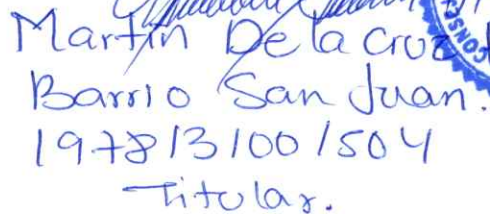 Martín De la Cruz
Barrio San Juan.
1978/3/00/504
Titular.
CONSE